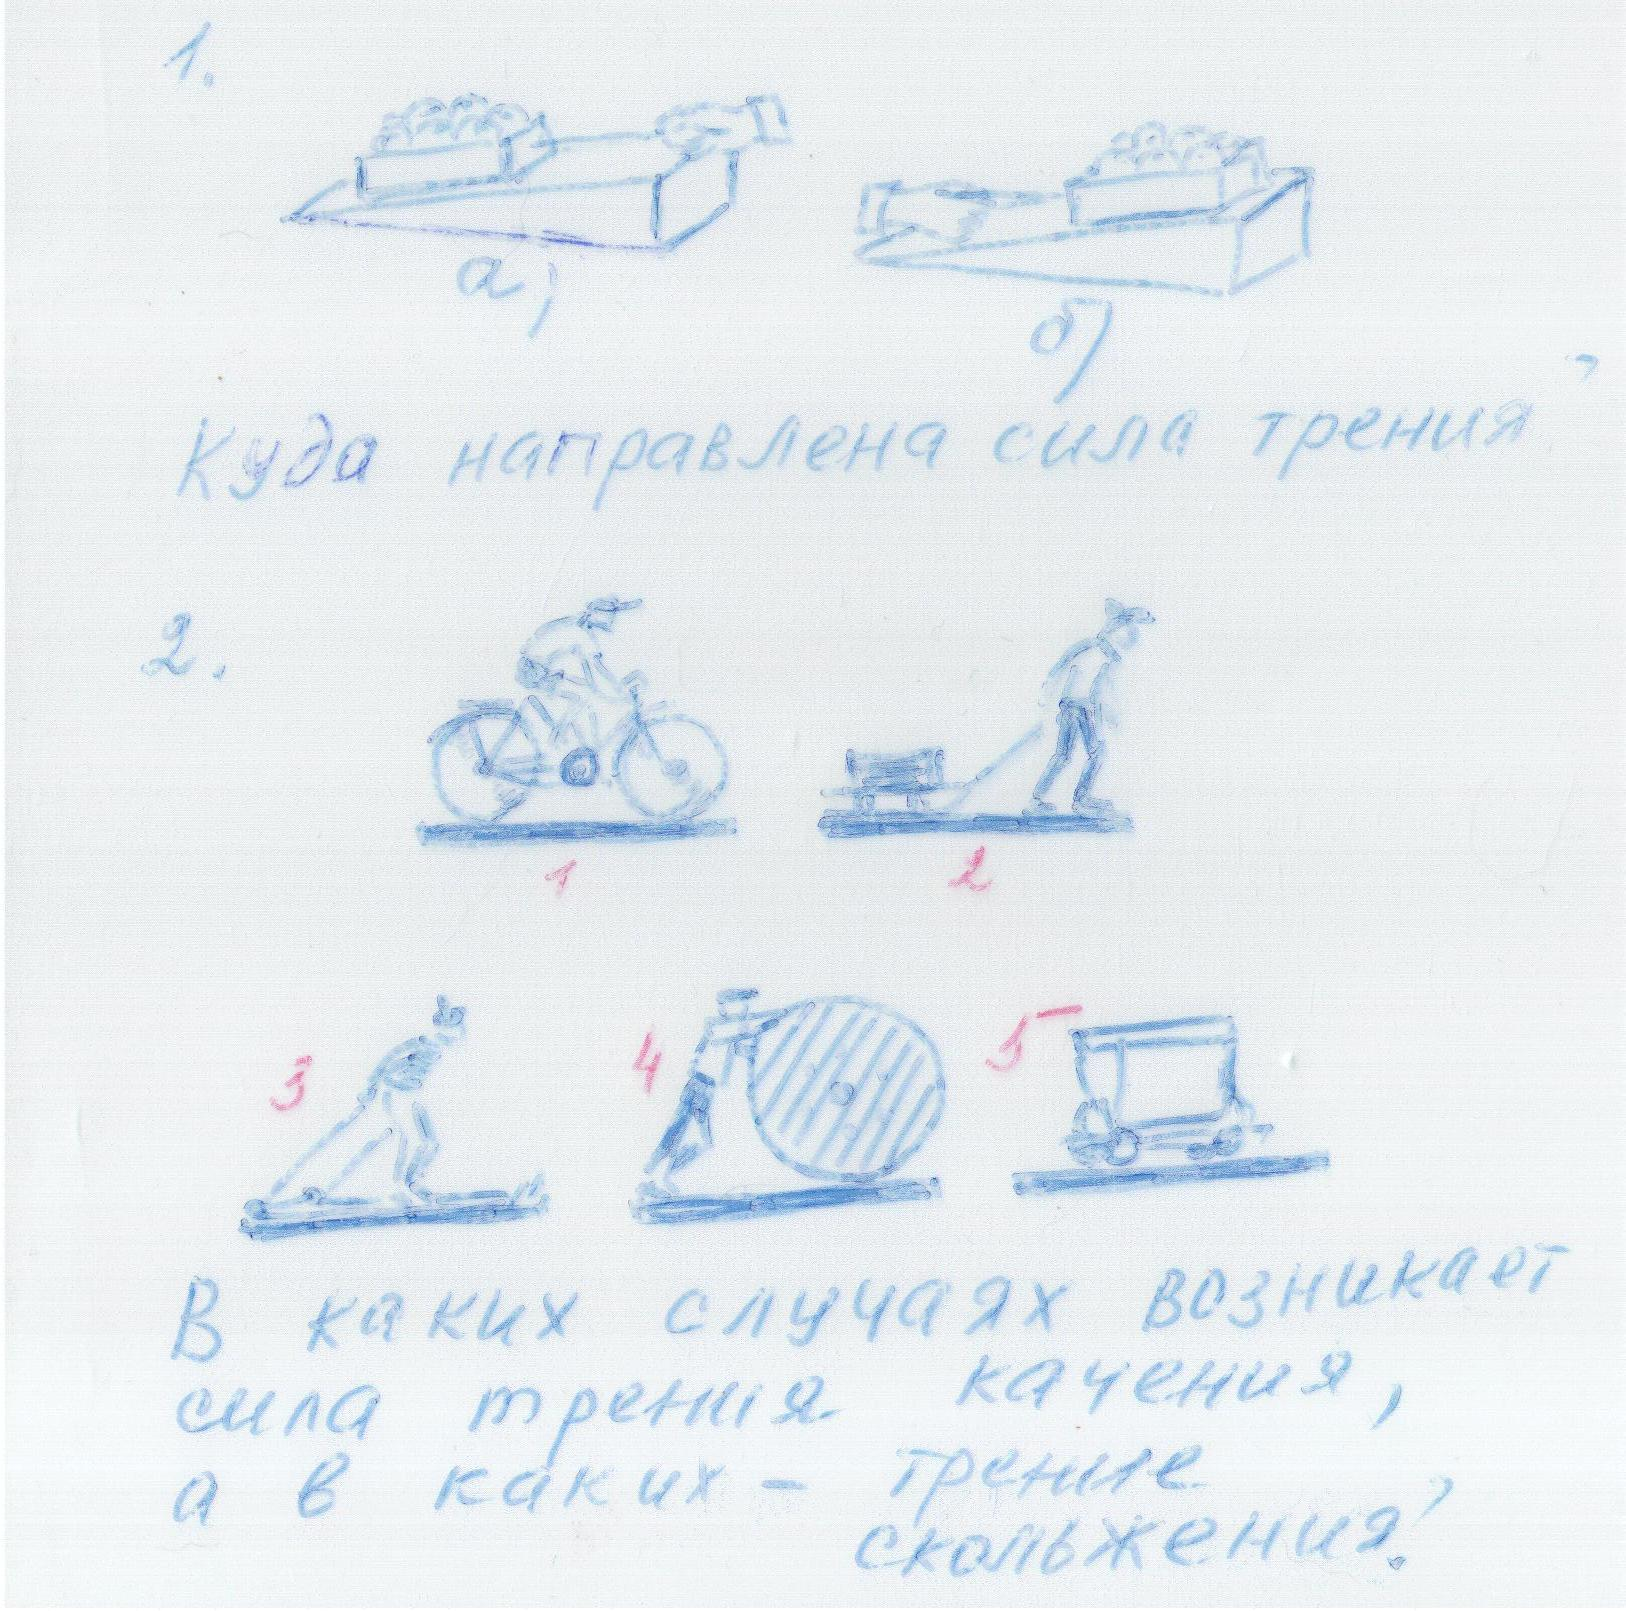 1.
а)
б)
Куда направлена сила трения?
2.
1
2
3
4
5
В каких случаях возникает
сила трения качения,
а в каких - трение
скольжения?